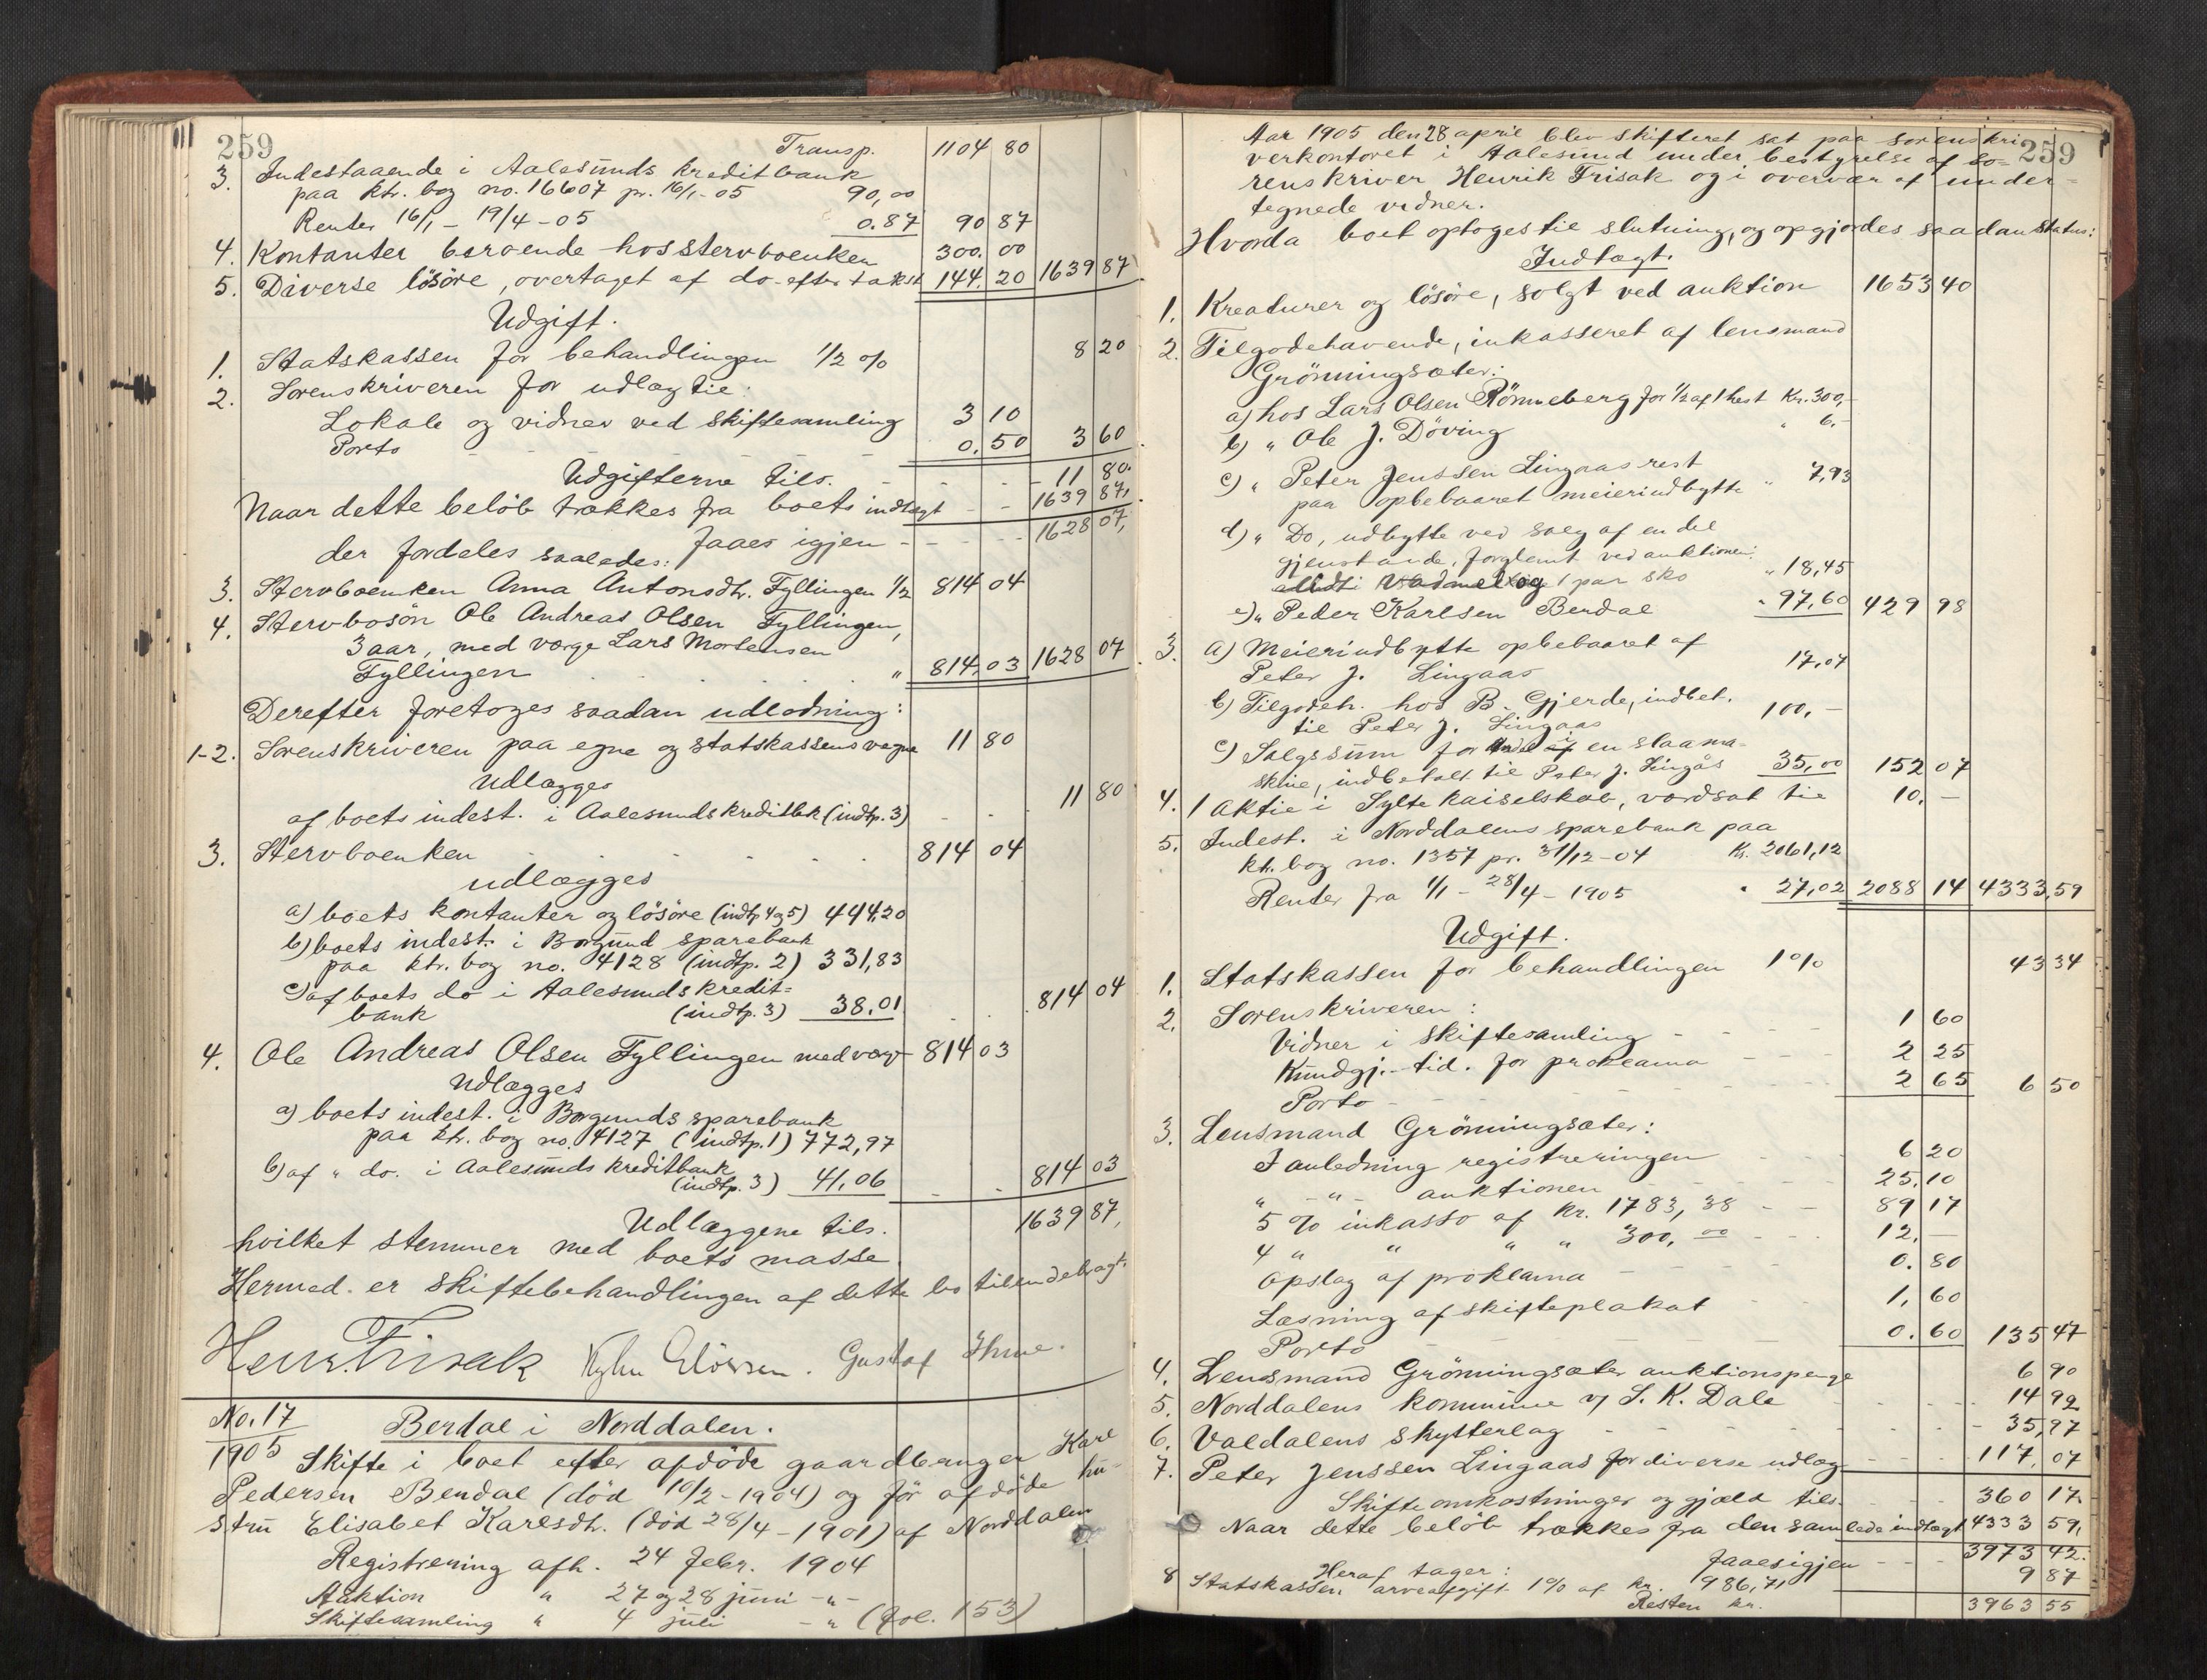 259
Transp. 1104 80
3. Indestaaende i Aalesunds kreditbank
paa ktr. bog no. 16607 pr. 16/1-05 90,00
Renter 16/1 - 19/4 - 05 0.87 90 87
4. Kontanter beroende hos stervboenken 300. 00
5. Diverse lösöre, overtaget af do. efter takst 144. 20 1639 87
Udgift.
1. Statskassen for behandlingen 1/2 % 8 20
2. Sorenskriveren for udlæg til:
Lokale og vidner ved skiftesamling 3 10
Porto 0. 50 3 60
Udgifterne tils. 11 80.
Naar dette belöb trækkes fra boets indtægt 1639 87,
faaes igjen 1628 07,
der fordeles saaledes:
3. Stervboenken Anna Antonsdtr. Fyllingen 1/2 814 04
4. Stervbosön Ole Andreas Olsen Fyllingen,
3 aar, med værge Lars Mortensen
Fyllingen " 814. 03 1628 07
Derefter foretoges saadan udlodning:
1-2. Sorenskriveren paa egne og statskassens vegne 11 80
udlægges
af boets indest. i Aalesunds kreditbk (indtp. 3) 11 80
3. Stervboenken 814 04
udlægges
a) boets kontanter og lösöre (indtp 4 og 5) 444,20
b) boets indest. i Borgund sparebank
paa ktr. bog no. 4128 (indtp. 2) 331,83
c) af boets do i Aalesunds kredit=
bank (indtp. 3) 38.01 814 04
4. Ole Andreas Olsen Fyllingen med værge 814 03
udlægges
a) boets indest. i Borgunds sparebank
paa ktr. bog no. 4127 (indtp. 1) 772,97
b) af " do. i Aalesunds kreditbank
(indtp. 3) 41,06 814 03
Udlæggene tils. 1639 87,
hvilket stemmer med boets masse.
Hermed er skiftebehandlingen af dette bo tilendebragt.
Henr. Frisak Gustaf Ihme.
No. 17
1905
Berdal i Norddalen.
Skifte i boet efter afdöde gaardbruger Karl
Pedersen Berdal (död 10/2 - 1904) og för afdöde hu-
stru Elisabet Karlsdtr. (död 28/4 - 1901) af Norddalen
Registrering afh. 24 febr. 1904
Auktion " 27 og 28 juni - " -
Skiftesamling " 4 juli - " (fol. 153)
259
Aar 1905 den 28 april blev skifteret sat paa sorenskri
verkontoret i Aalesund under bestyrelse af so=
renskriver Henrik Frisak og i overvær af under=
tegnede vidner.
Hvorda boet optoges til slutning, og opgjordes saadan status:
Indtægt.
1. Kreaturer og lösöre, solgt ved auktion 1653 40
2. Tilgodehavende, inkasseret af lensmand
Grönningsæter:
a) hos Lars Olsen Rönneberg for 1/2 af 1 hest Kr. 300,-
b) " Ole J. Döving " 6.-
c) " Peter Jenssen Lingaas rest
paa opbebaaret meieriudbytte " 7,93
d) " Do, udbytte ved salg af en del
gjenstande, forglemt ved auktionen:
vadmel og 1 par sko " 18,45
e) " Peder Karlsen Berdal " 97,60 429 98
3. a) Meieriudbytte opbebaaret af
Peter J. Lingaas 17,07
b) Tilgodeh. hos B. Gjerde, indbet.
til Peter J. Lingaas 100,-
c) Salgssum for andel i en slaama-
skine, indbetalt til Peter J. Lingås 35,00 152 07
4. 1 aktie i Sylte kaiselskab, værdsat til 10. -
5. Indest. i Norddalens sparebank paa
kt. bog no. 1357 pr. 31/12-04 Kr. 2061,12
Renter fra 1/1 - 28/4 - 1905 " 27,02 2088 14 4333,59
Udgift.
1. Statskassen for behandlingen 1 % 43 34
2. Sorenskriveren:
Vidner i skiftesamling 1 60
Kundgj.-tid. for proklama 2 25
Porto 2 65 6 50
3. Lensmand Grönningsæter:
I anledning registreringen 6 20
" - " - auktionen 25. 10
5 % inkasso af kr. 1783, 38 89 17
4 " " " " 300, 00 12. -
Opslag af proklama 0. 80
Læsning af skifteplakat 1, 60
Porto 0. 60 135 47
4. Lensmand Grönningsæter auktionspenge 6 90
5. Norddalens kommune v/ S. K. Dale 14 92
6. Valdalens skytterlag 35,97
7. Peter Jenssen Lingaas for diverse udlæg 117, 07
Skifteomkostninger og gjæld tils. 360 17.
Naar dette belöb trækkes fra den samlede indtægt 4333 59,
faaes igjen 3973 42.
Heraf tager:
8 Statskassen arveafgift 1 % af kr. 986,71 9 87
Resten kr. 3963 55